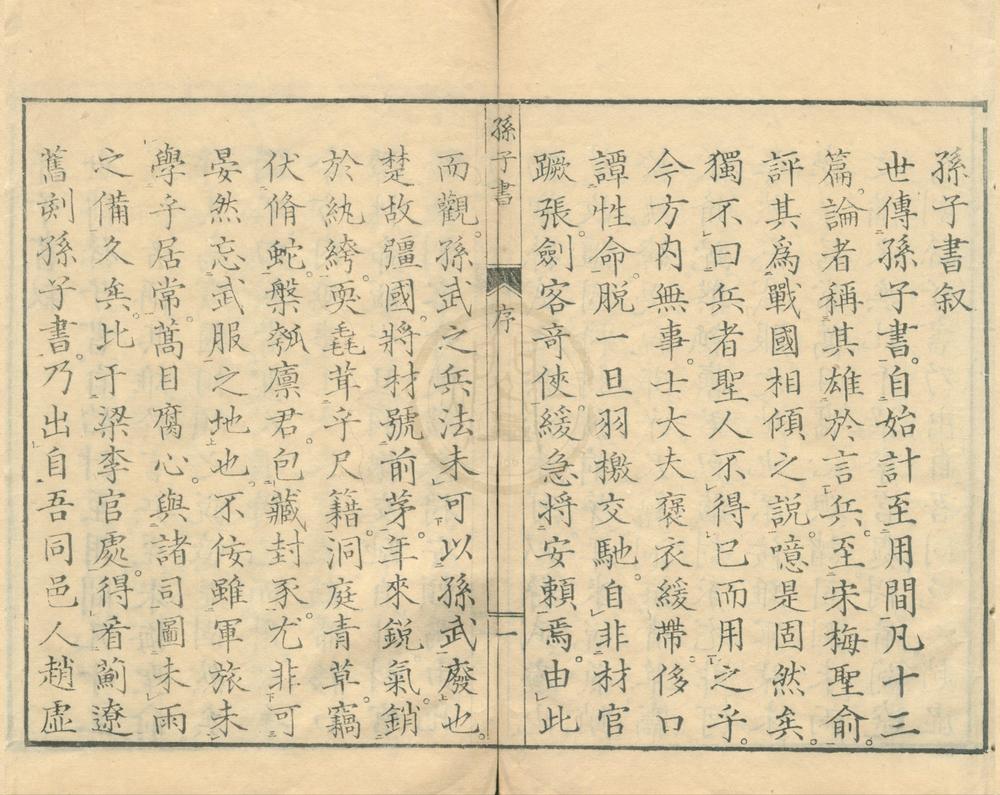 孫子書叙
世傳孫子書。自始計至用間凡十三
篇。論者稱其雄於言兵。至宋梅聖俞。
評其爲戰國相傾之說。噫是固然矣。
獨不曰兵者聖人不得已而用之乎。
今方内無事。士大夫褒衣緩帶。侈口
譚性命。脱一旦羽檄交馳。自非材官
蹶張。劍客奇俠。緩急將安頼焉。由此
孫子書
序
一
而觀。孫武之兵法未可以孫武廢也。
楚故彊國。將材號前茅。年來銳氣。銷
於紈綺。耎毳茸乎尺籍。洞庭青草。竊
伏脩蛇。槃瓠廩君。包藏封豕。尤非可
晏然忘武服之地也。不佞雖軍旅未
學乎居常。蒿目腐心。與諸司圖未雨
之備久矣。比于梁李官處。得看薊遼
舊刻孫子書。乃出自吾同邑人趙虛